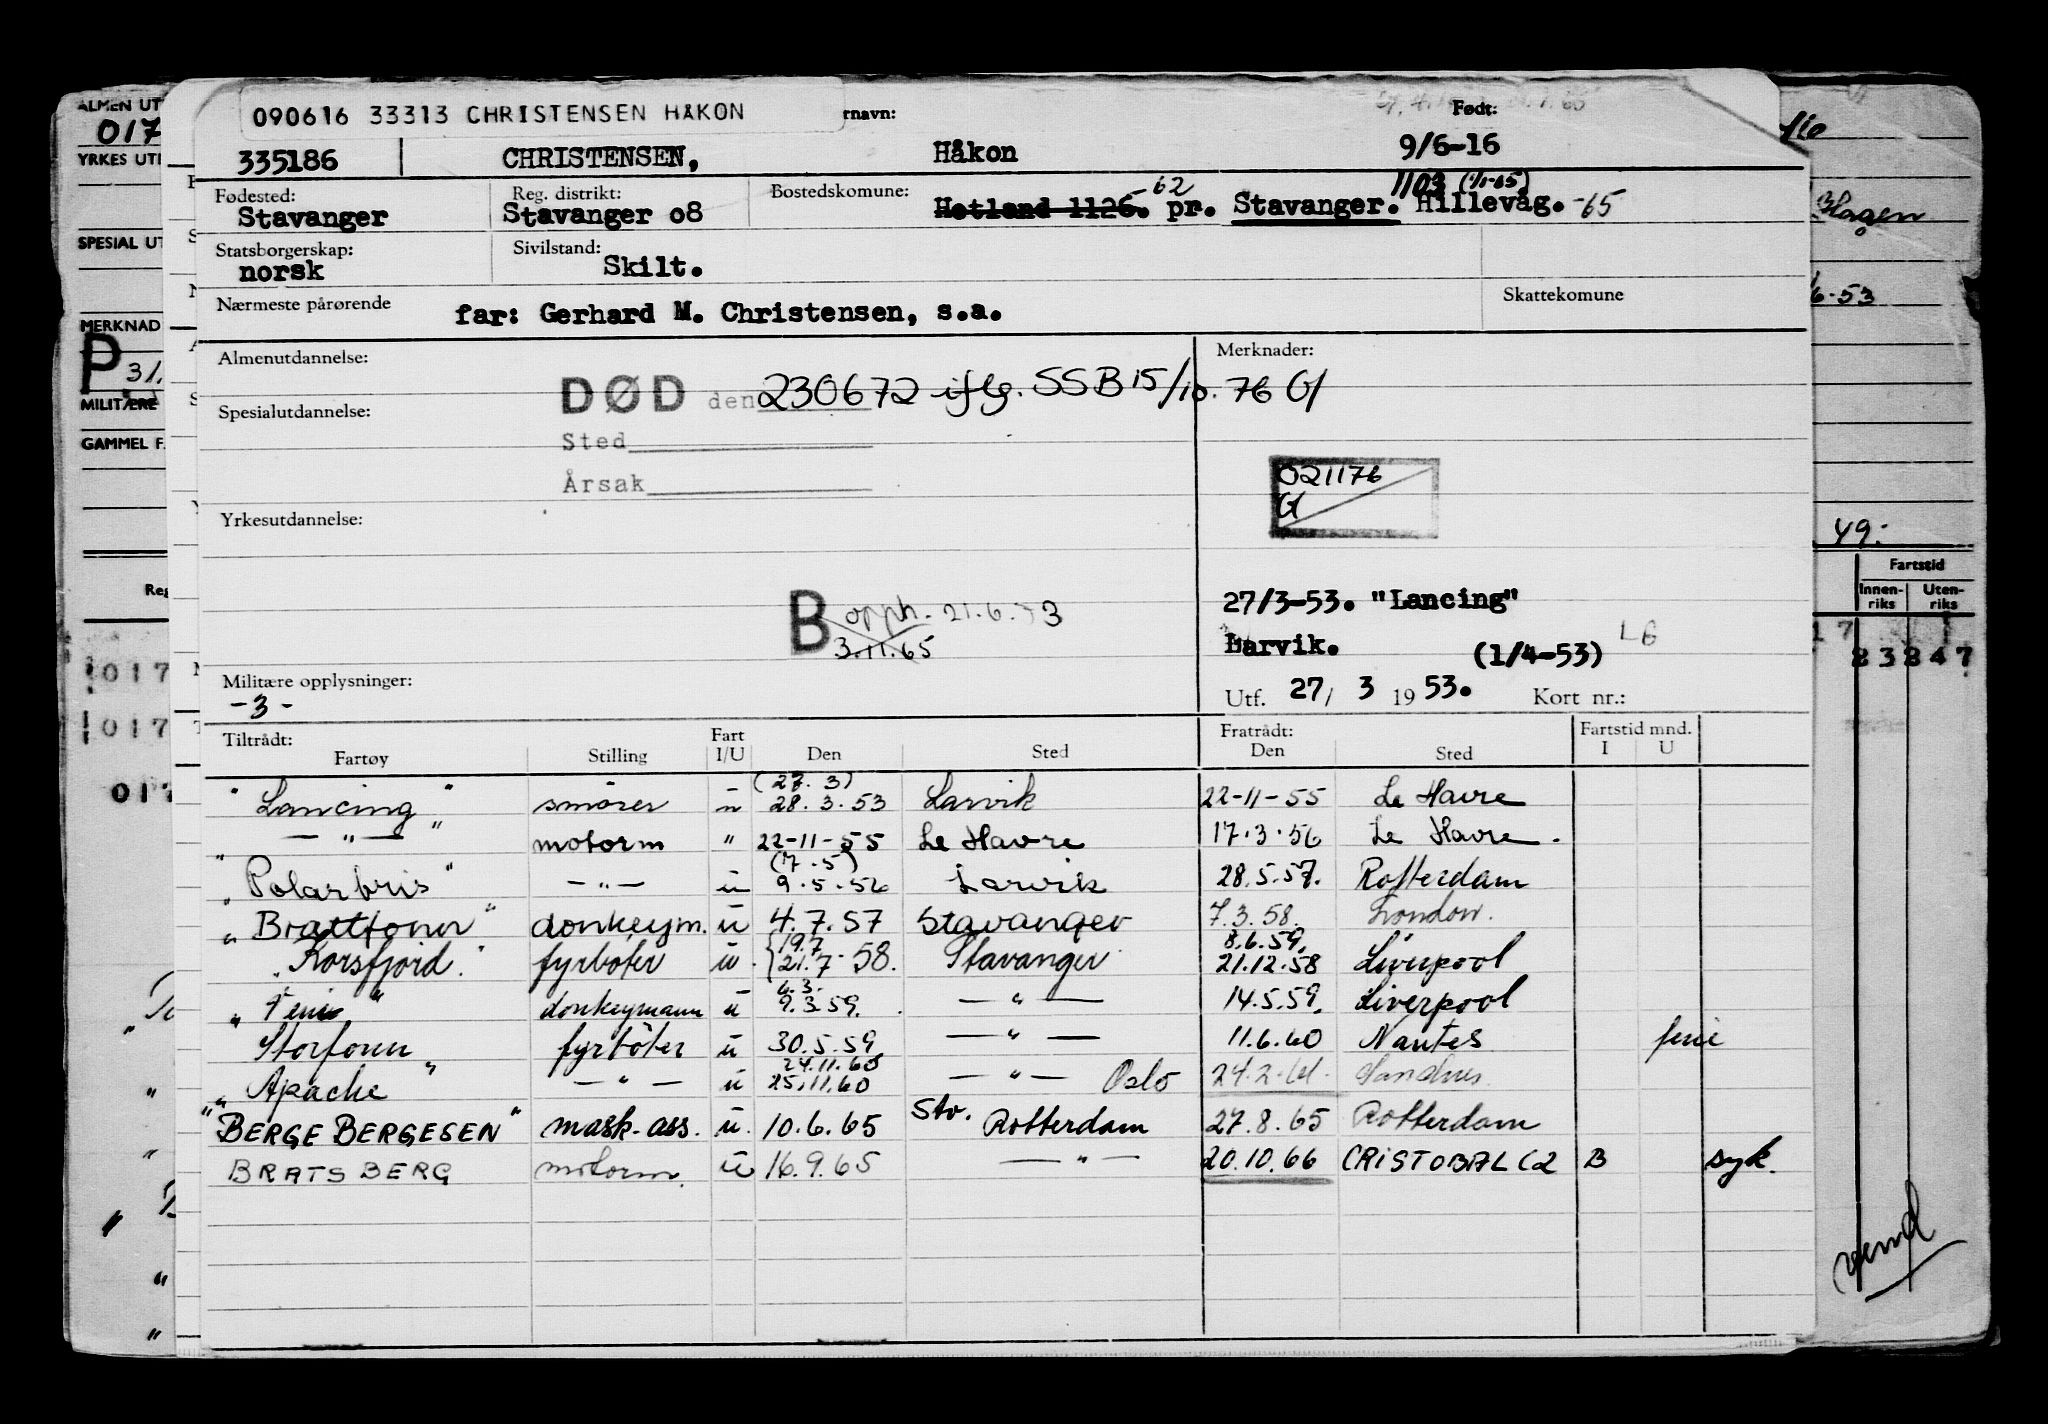 090616 33313 CHRISTENSEN HÅKON
rnavn:
Født:
335186 CHRISTENSEN, Håkon 9/6-16
Fødested: Reg. distrikt: Bostedskomune: 62 1103
Stavanger Stavanger o8 Hetland 1126. pr. Stavanger. Hillevåg. -65
Statsborgerskap: Sivilstand:
norsk Skilt.
Nærmeste pårørende Skattekomune
far: Gerhard M. Christensen, s.a.
Almenutdannelse: Merknader:
DØD den 230672 iflg. SSB 15/10. 76 G
Spesialutdannelse:
Sted
021176
Årsak
G
Yrkesutdannelse:
27/3-53. "Lancing"
B opph. 21.6.73
3.11.65
Larvik. (1/4-53) LG
Militære opplysninger:
-3-
Utf. 27/ 3 1953. Kort nr.:
Tiltrådt: Fart Fratrådt: Fartstid mnd.
Fartøy Stilling I/U Den Sted Den Sted I U
(27.3)
"Lancing" smører u 28.3.53 Larvik 22-11-55 Le Havre
— " — motorm " 22-11-55 Le Havre 17.3.56 Le Havre.
(7.5)
"Polarbris" — " — u 9.5.56 Larvik 28.5.57. Rotterdam
"Brattfonn" donkeym. u 4.7.57 Stavanger 7.3.58. London.
19.7 8.6.59.
"Korsfjord." fyrbøter u. 21.7 58. Stavanger 21.12.58 Liverpool
6.3.
donkeymann u 9.3.59. — " — 14.5.59. Liverpool
"Storfonn" fyrbøter u 30.5.59 — " — 11.6.60 Nantes ferie
24.11.60
"Apache" — " — u 25.11.60 — " — Oslo 24.2.61.
"BERGE BERGESEN" mask-ass. u. 10.6.65 Stv. Rotterdam 27.8.65 Rotterdam
BRATSBERG motorm. u 16.9.65 — " — 20.10.66 CRISTOBAL CZ B syk.
ALMEN UT
017
YRKES UT
SPESIAL UT
MERKNAD
P 31.
MILITÆRE
GAMMEL F.
Reg
017
017
017
Hagen
6.53
49.
Fartstid
Innen-riks Uten-riks
17
vend